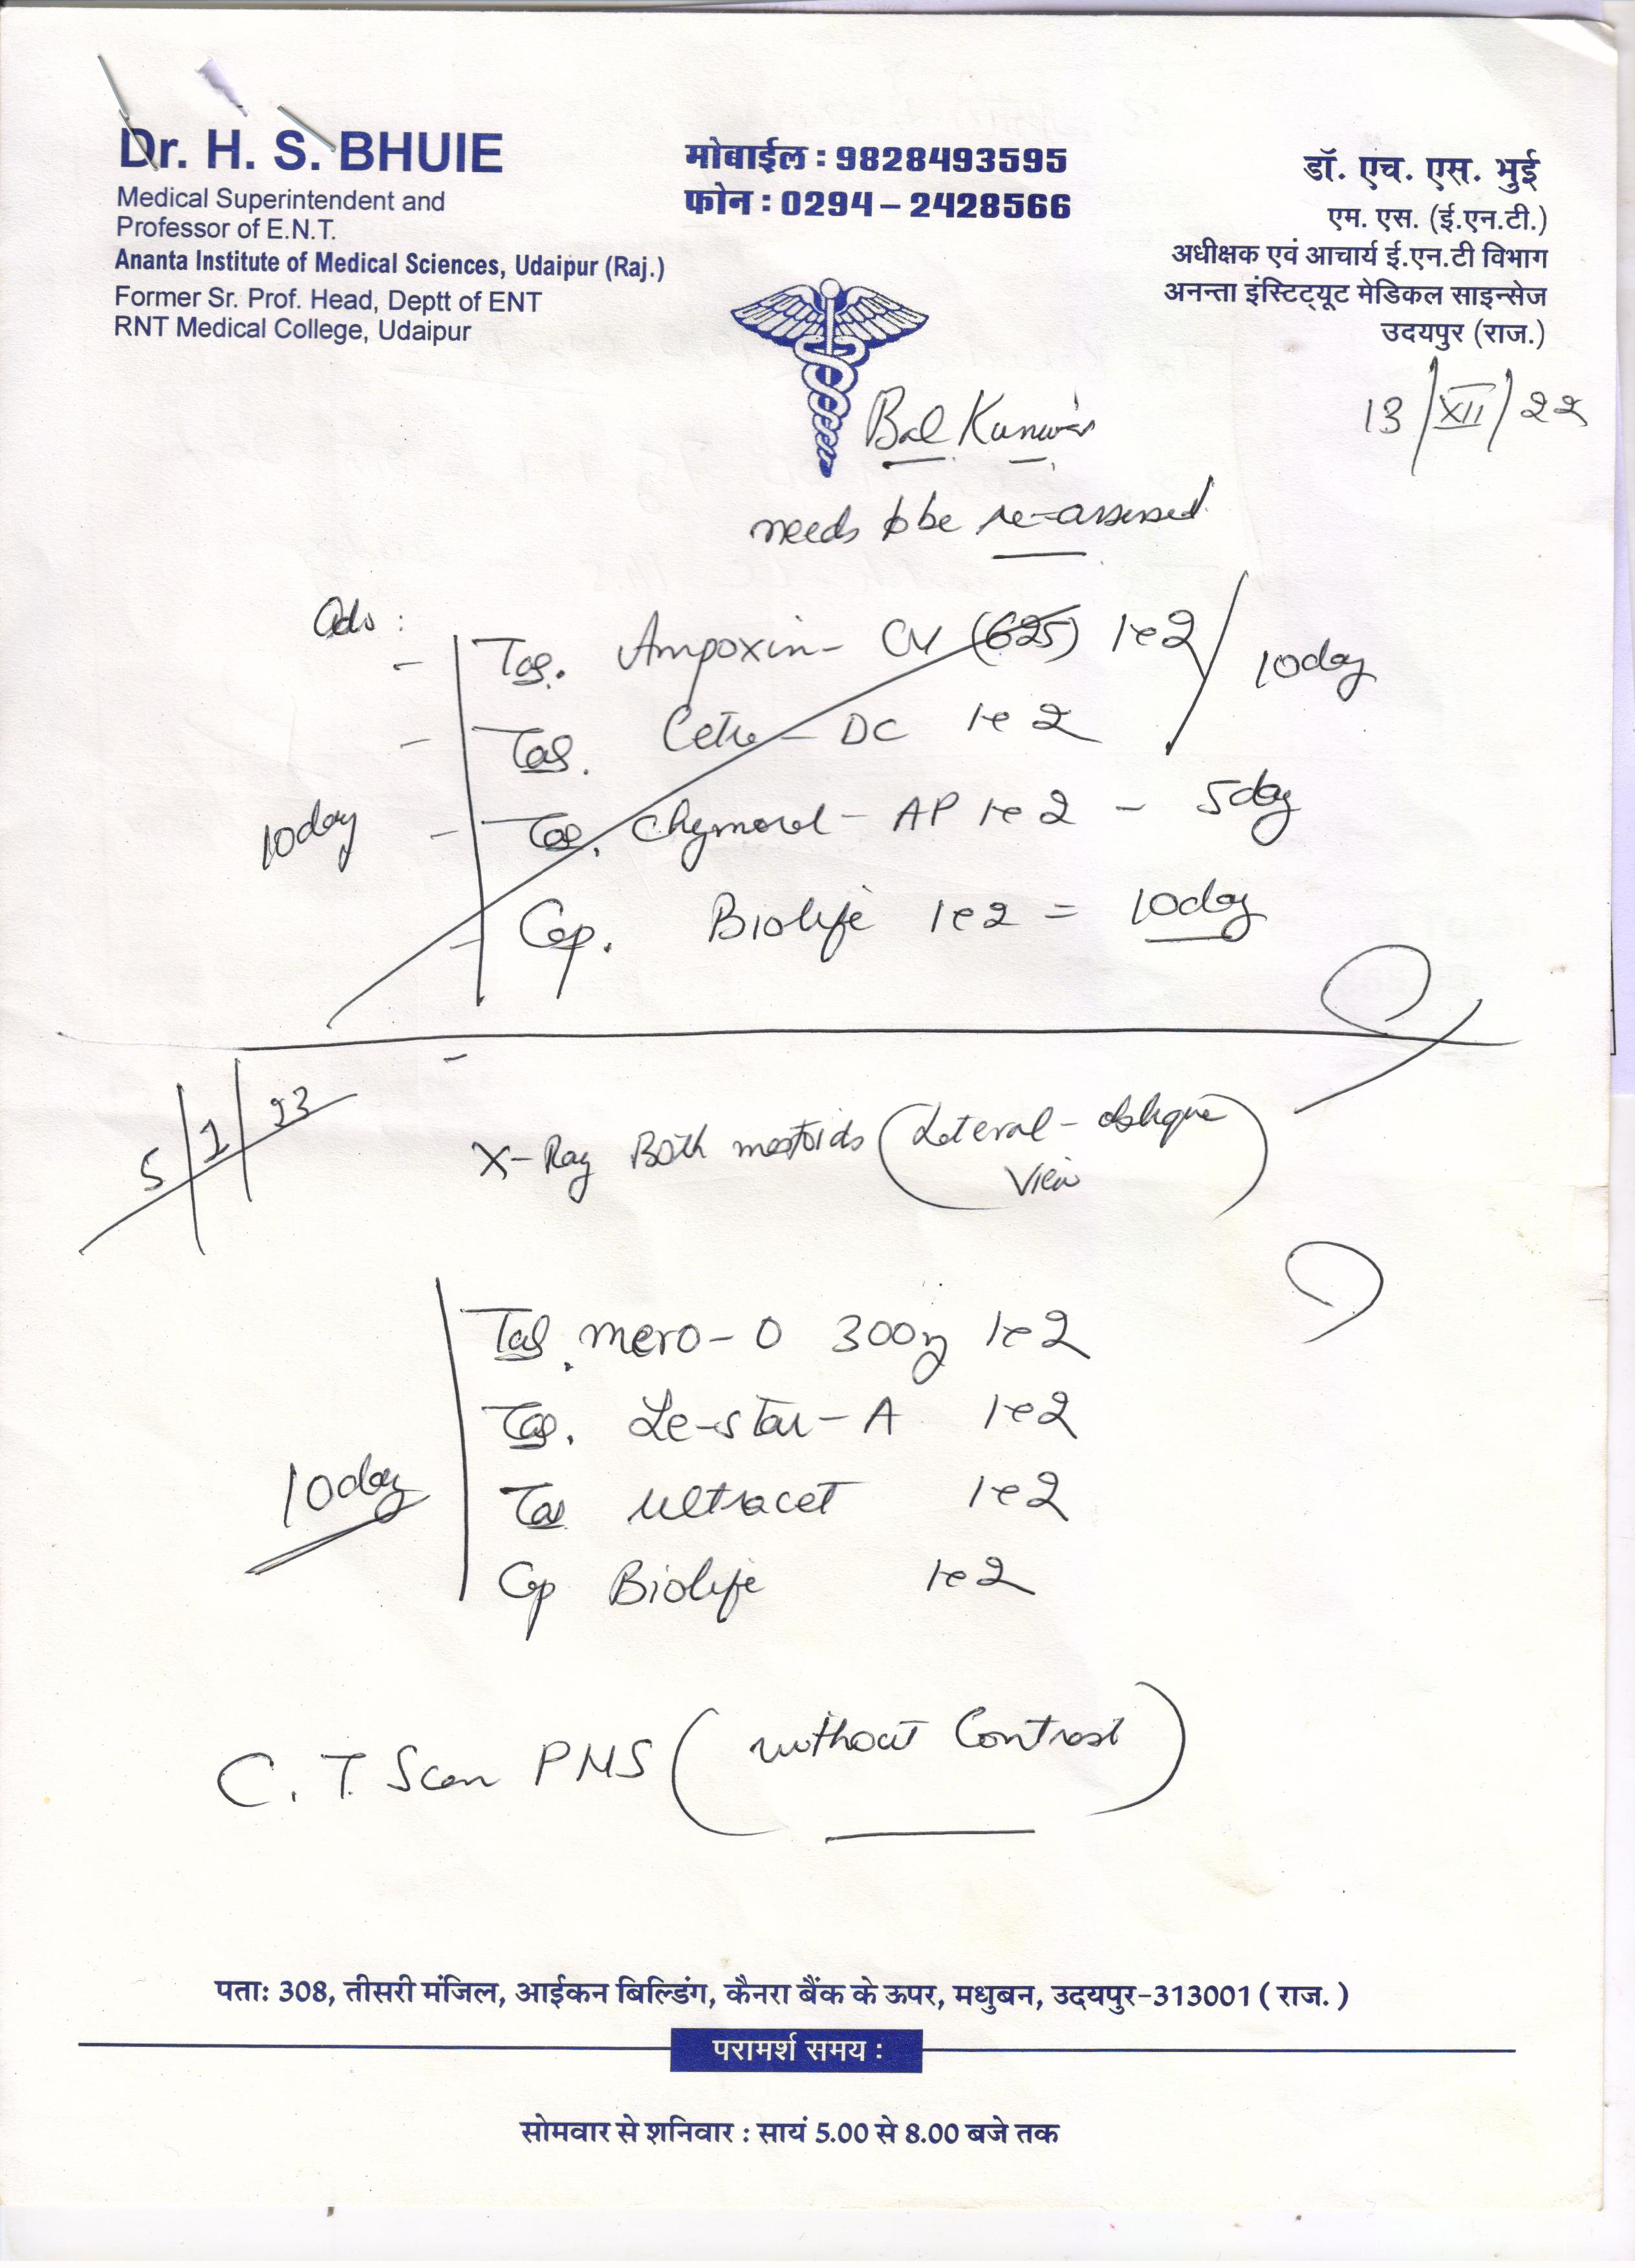 Dr. H. S. BHUIE
Medical Superintendent and
Professor of E.N.T.
Ananta Institute of Medical Sciences, Udaipur (Raj.)
Former Sr. Prof. Head, Deptt of ENT
RNT Medical College, Udaipur
मोबाईल : 9828493595
फोन : 0294 – 2428566
डॉ. एच. एस. भुई
एम. एस. (ई.एन.टी.)
अधीक्षक एवं आचार्य ई.एन.टी विभाग
अनन्ता इंस्टिट्यूट मेडिकल साइन्सेज
उदयपुर (राज.)
13/XII/22
Bal Kunwar
needs to be re-assessed
Adv :
- Tab. Ampoxin- CV (625) 1e2 / 10day
- Tab. Cetre - DC 1e2
10day - Tab. Chymoral - AP 1e2 - 5day
- Cap. Biolife 1e2 = 10day
5/1/23
X-Ray Both mastoids (Lateral-oblique
View)
Tab. mero-O 300mg 1e2
Tab. Le-star-A 1e2
10day Tab Ultracet 1e2
Cap Biolife 1e2
C. T. Scan PNS (without Contrast)
पता: 308, तीसरी मंजिल, आईकन बिल्डिंग, कैनरा बैंक के ऊपर, मधुबन, उदयपुर-313001 ( राज. )
परामर्श समय :
सोमवार से शनिवार : सायं 5.00 से 8.00 बजे तक